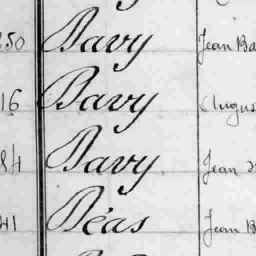 250 Davy Jean Ba
16 Davy Augus
84 Davy Jean
41 Déas Jean B